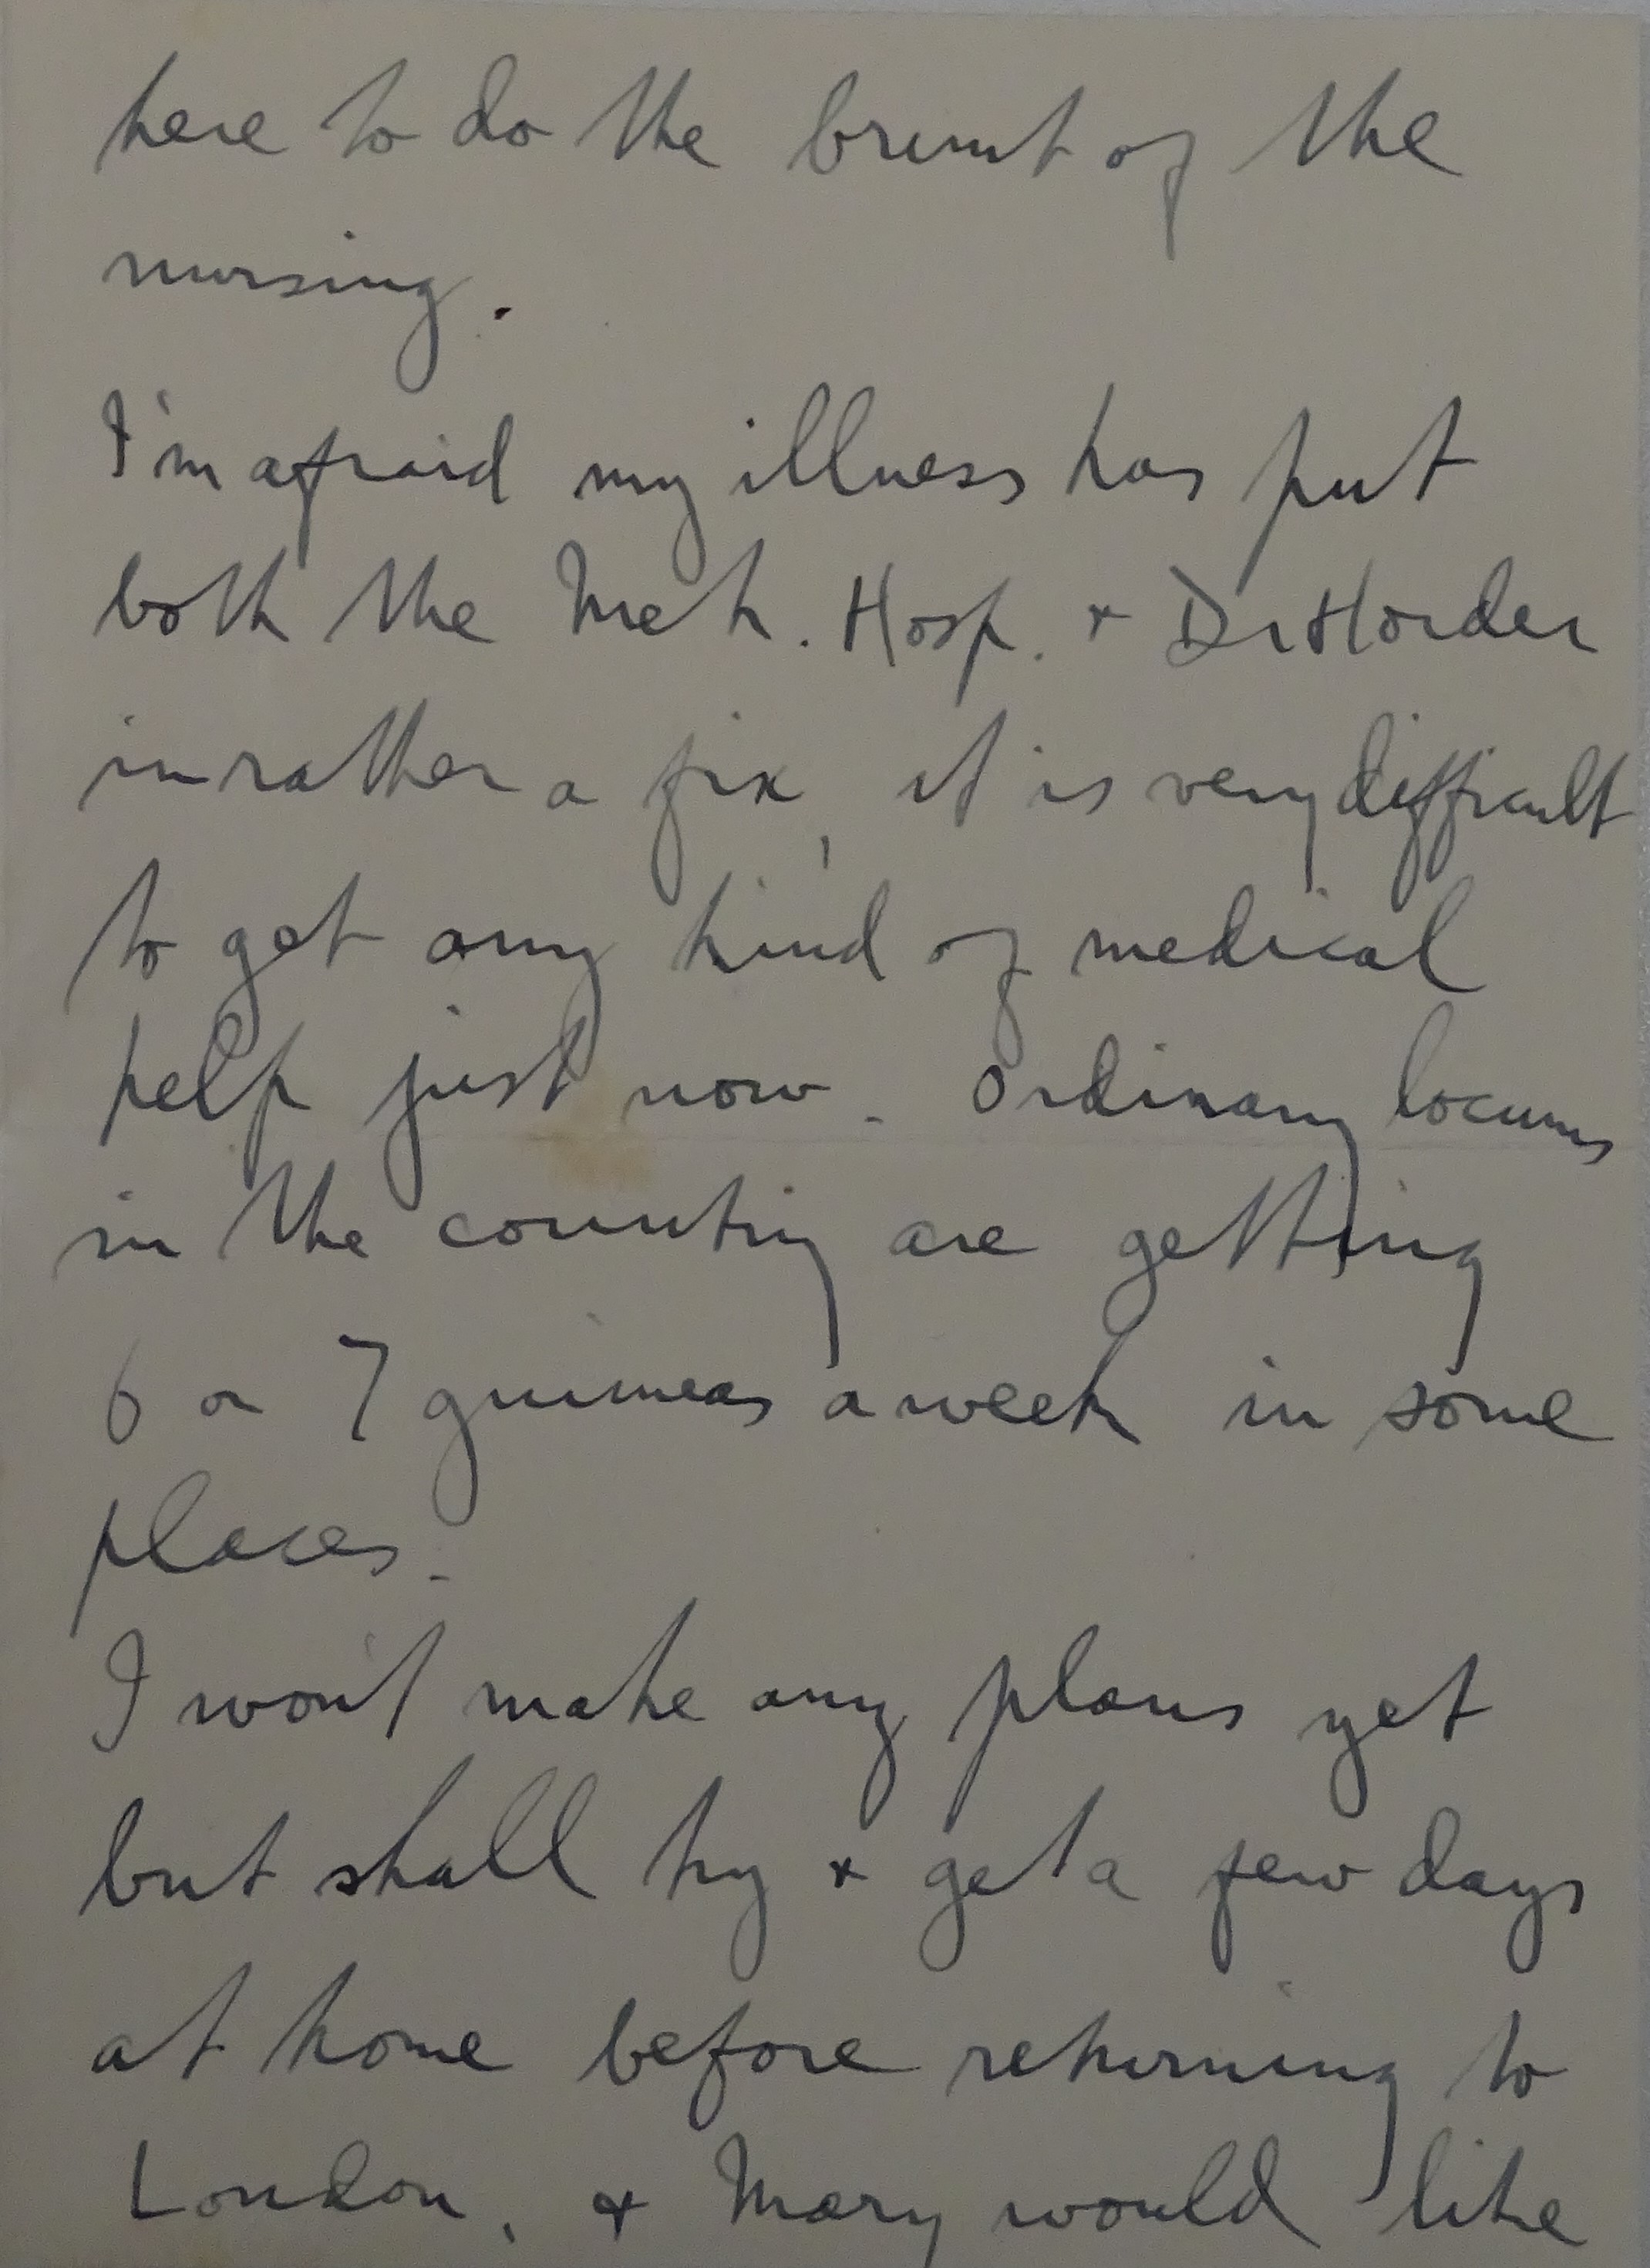 here to do the brunt of the
nursing.
I'm afraid my illness has put
both the Meh. Hosp. + Dr Horder
in rather a fix, it is very difficult
to get any kind of medical
help just now. Ordinary locums
in the country are getting
6 or 7 guineas a week in some
places.
I won't make any plans yet
but shall try + get a few days
at home before returning to
London, + Mary would like